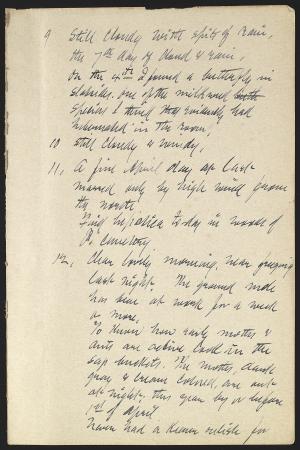 9 Still cloudy with spits of Rain,
the 7th day of cloud & rain,
On the 4th I found a butterfly in
Slabsides. one of the milkweed
species I think that evidently had
hibernated in the room,
10 still cloudy & windy,
11, A fine April day at last
marred only by high wind from
the north
Find hepatica to-day in woods of
Po. Cemetery
12, Clear lovely morning, near freezing
last night. The ground mole
has been at work for a week
or more,
To know how early moths &
ants are active look in the
sap buckets. The moths, dark
gray & cream colored, are out
at night, this year by or before
1st of April
Never had a keener relish for